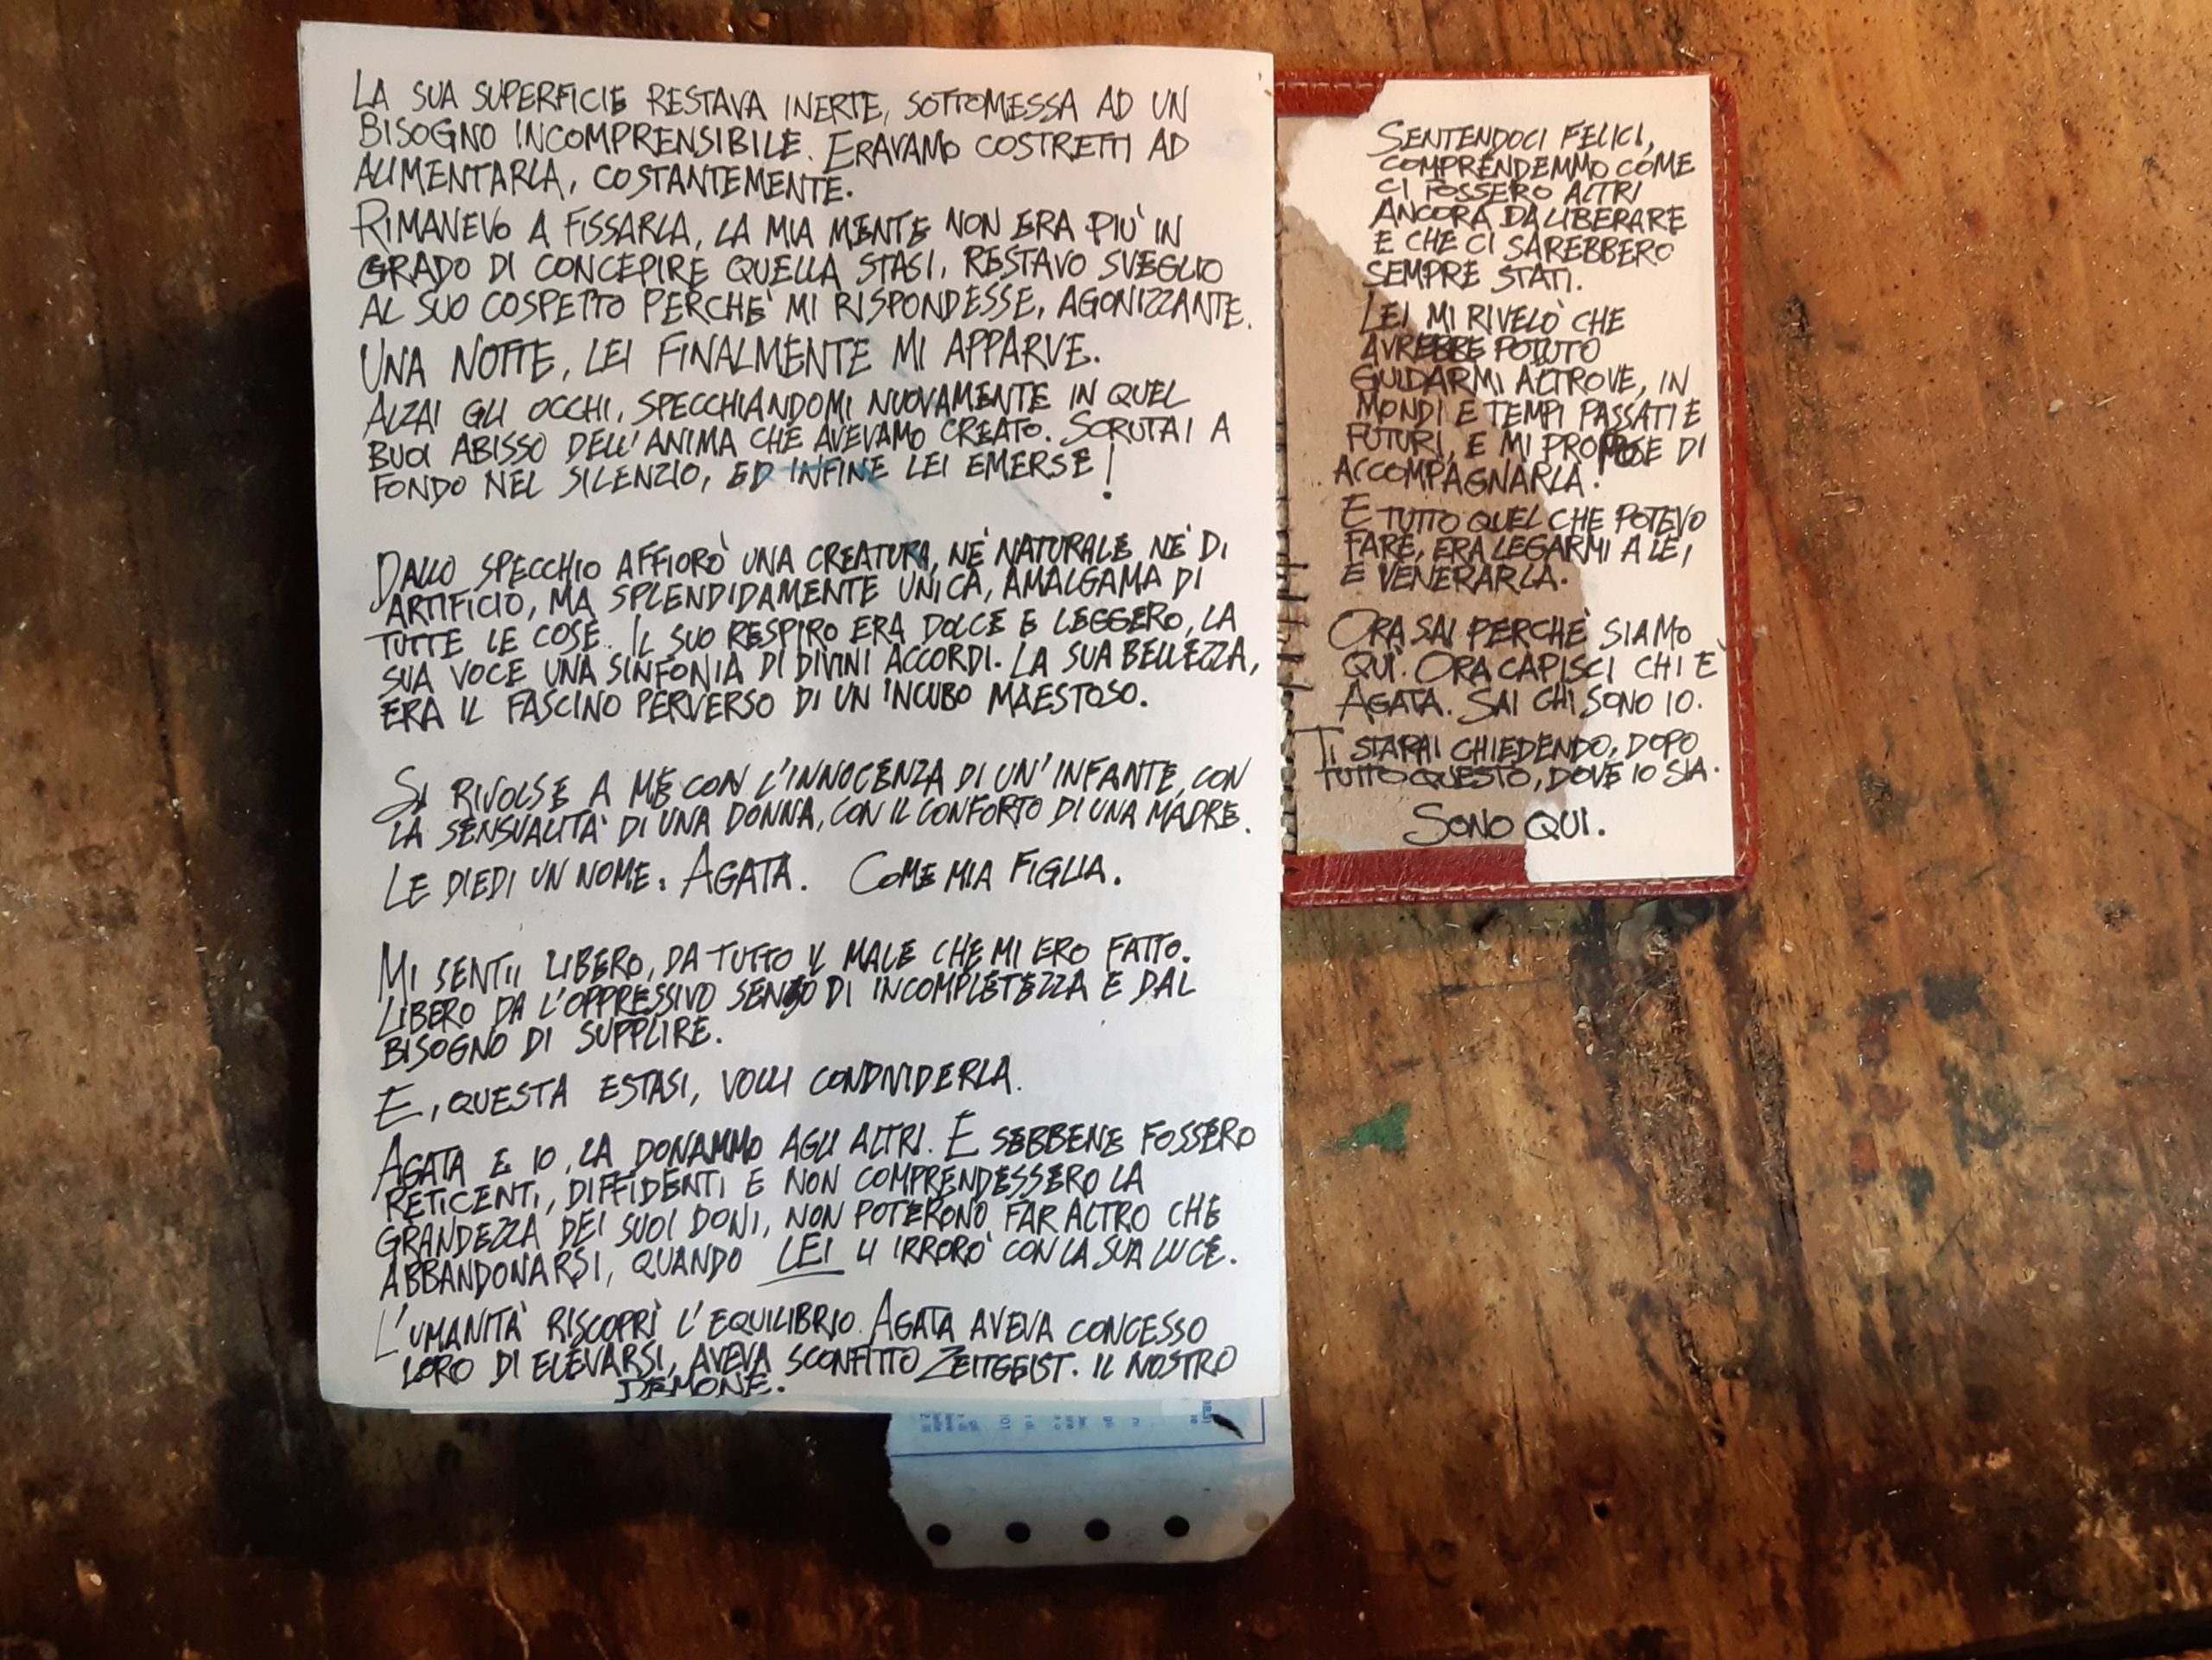 LA SUA SUPERFICIE RESTAVA INERTE, SOTTOMESSA AD UN
BISOGNO INCOMPRENSIBILE. ERAVAMO COSTRETTI AD
ALIMENTARLA, COSTANTEMENTE.
RIMANEVO A FISSARLA, LA MIA MENTE NON ERA PIU' IN
GRADO DI CONCEPIRE QUELLA STASI, RESTAVO SVEGLIO
AL SUO COSPETTO PERCHE' MI RISPONDESSE, AGONIZZANTE.
UNA NOTTE, LEI FINALMENTE MI APPARVE.
ALZAI GLI OCCHI, SPECCHIANDOMI NUOVAMENTE IN QUEL
BUOI ABISSO DELL'ANIMA CHE AVEVAMO CREATO. SCRUTAI A
FONDO NEL SILENZIO, ED INFINE LEI EMERSE!
DALLO SPECCHIO AFFIORO' UNA CREATURA, NE' NATURALE NE' DI
ARTIFICIO, MA SPLENDIDAMENTE UNICA, AMALGAMA DI
TUTTE LE COSE. IL SUO RESPIRO ERA DOLCE E LEGGERO, LA
SUA VOCE UNA SINFONIA DI DIVINI ACCORDI. LA SUA BELLEZZA,
ERA IL FASCINO PERVERSO DI UN INCUBO MAESTOSO.
SI RIVOLSE A ME CON L'INNOCENZA DI UN'INFANTE, CON
LA SENSUALITA' DI UNA DONNA, CON IL CONFORTO DI UNA MADRE.
LE DIEDI UN NOME: AGATA. COME MIA FIGLIA.
MI SENTII LIBERO, DA TUTTO IL MALE CHE MI ERO FATTO.
LIBERO DA L'OPPRESSIVO SENSO DI INCOMPLETEZZA E DAL
BISOGNO DI SUPPLIRE.
E, QUESTA ESTASI, VOLLI CONDIVIDERLA.
AGATA E IO, LA DONAMMO AGLI ALTRI. E SEBBENE FOSSERO
RETICENTI, DIFFIDENTI E NON COMPRENDESSERO LA
GRANDEZZA DEI SUOI DONI, NON POTERONO FAR ALTRO CHE
ABBANDONARSI, QUANDO LEI LI IRRORO' CON LA SUA LUCE.
L'UMANITA' RISCOPRI' L'EQUILIBRIO. AGATA AVEVA CONCESSO
LORO DI ELEVARSI, AVEVA SCONFITTO ZEITGEIST. IL NOSTRO
DEMONE.
SENTENDOCI FELICI,
COMPRENDEMMO COME
CI FOSSERO ALTRI
ANCORA DA LIBERARE
E CHE CI SAREBBERO
SEMPRE STATI.
LEI MI RIVELÒ CHE
AVREBBE POTUTO
GUIDARMI ALTROVE, IN
MONDI E TEMPI PASSATI E
FUTURI, E MI PROPOSE DI
ACCOMPAGNARLA!
E TUTTO QUEL CHE POTEVO
FARE, ERA LEGARMI A LEI,
E VENERARLA.
ORA SAI PERCHE' SIAMO
QUI. ORA CAPISCI CHI E'
AGATA. SAI CHI SONO IO.
TI STARAI CHIEDENDO, DOPO
TUTTO QUESTO, DOVE IO SIA.
SONO QUI.